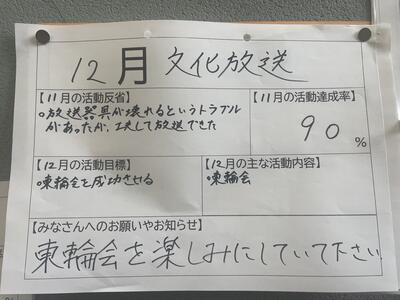 12月 文化放送
【11月の活動反省】
・放送器具が壊れるというトラブル
があったが、工夫して放送できた
【11月の活動達成率】
90%
【12月の活動目標】
・東輪会を成功させる
【12月の主な活動内容】
・東輪会
【みなさんへのお願いやお知らせ】
東輪会を楽しみにしていて下さい